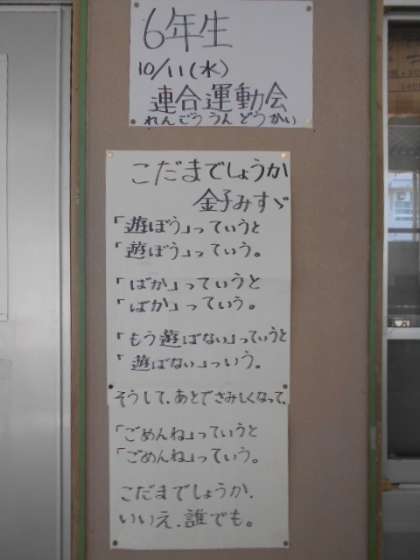 6年生
10/11(水)
連合運動会
れんごううんどうかい
こだまでしょうか
金子みすゞ
「遊ぼう」っていうと
「遊ぼう」っていう。
「ばか」っていうと
「ばか」っていう。
「もう遊ばない」っていうと
「遊ばない」っいう。
そうして、あとでさみしくなって、
「ごめんね」っていうと
「ごめんね」っていう。
こだまでしょうか、
いいえ、誰でも。